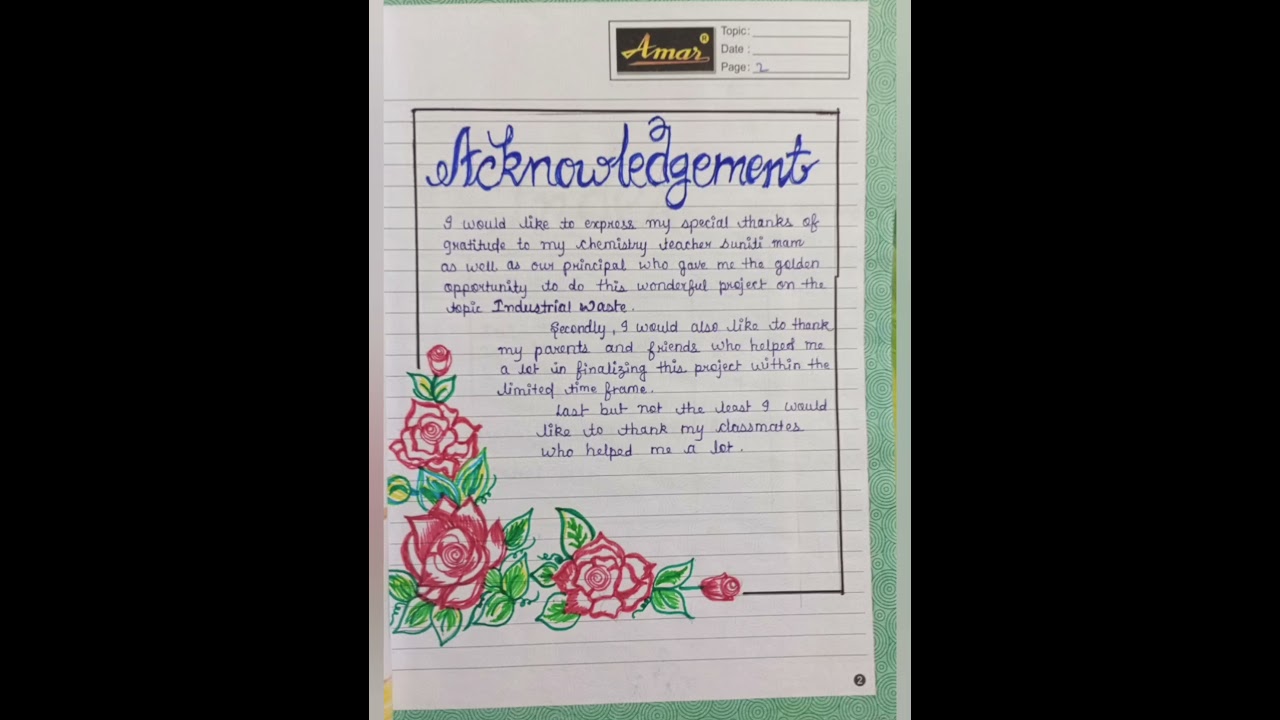 Amar R
Topic:
Date :
Page: 2
Acknowledgement
I would like to express my special thanks of
gratitude to my chemistry teacher suniti mam
as well as our principal who gave me the golden
opportunity to do this wonderful project on the
topic Industrial Waste.
Secondly, I would also like to thank
my parents and friends who helped me
a lot in finalizing this project within the
limited time frame.
Last but not the least I would
like to thank my classmates
who helped me a lot.
2